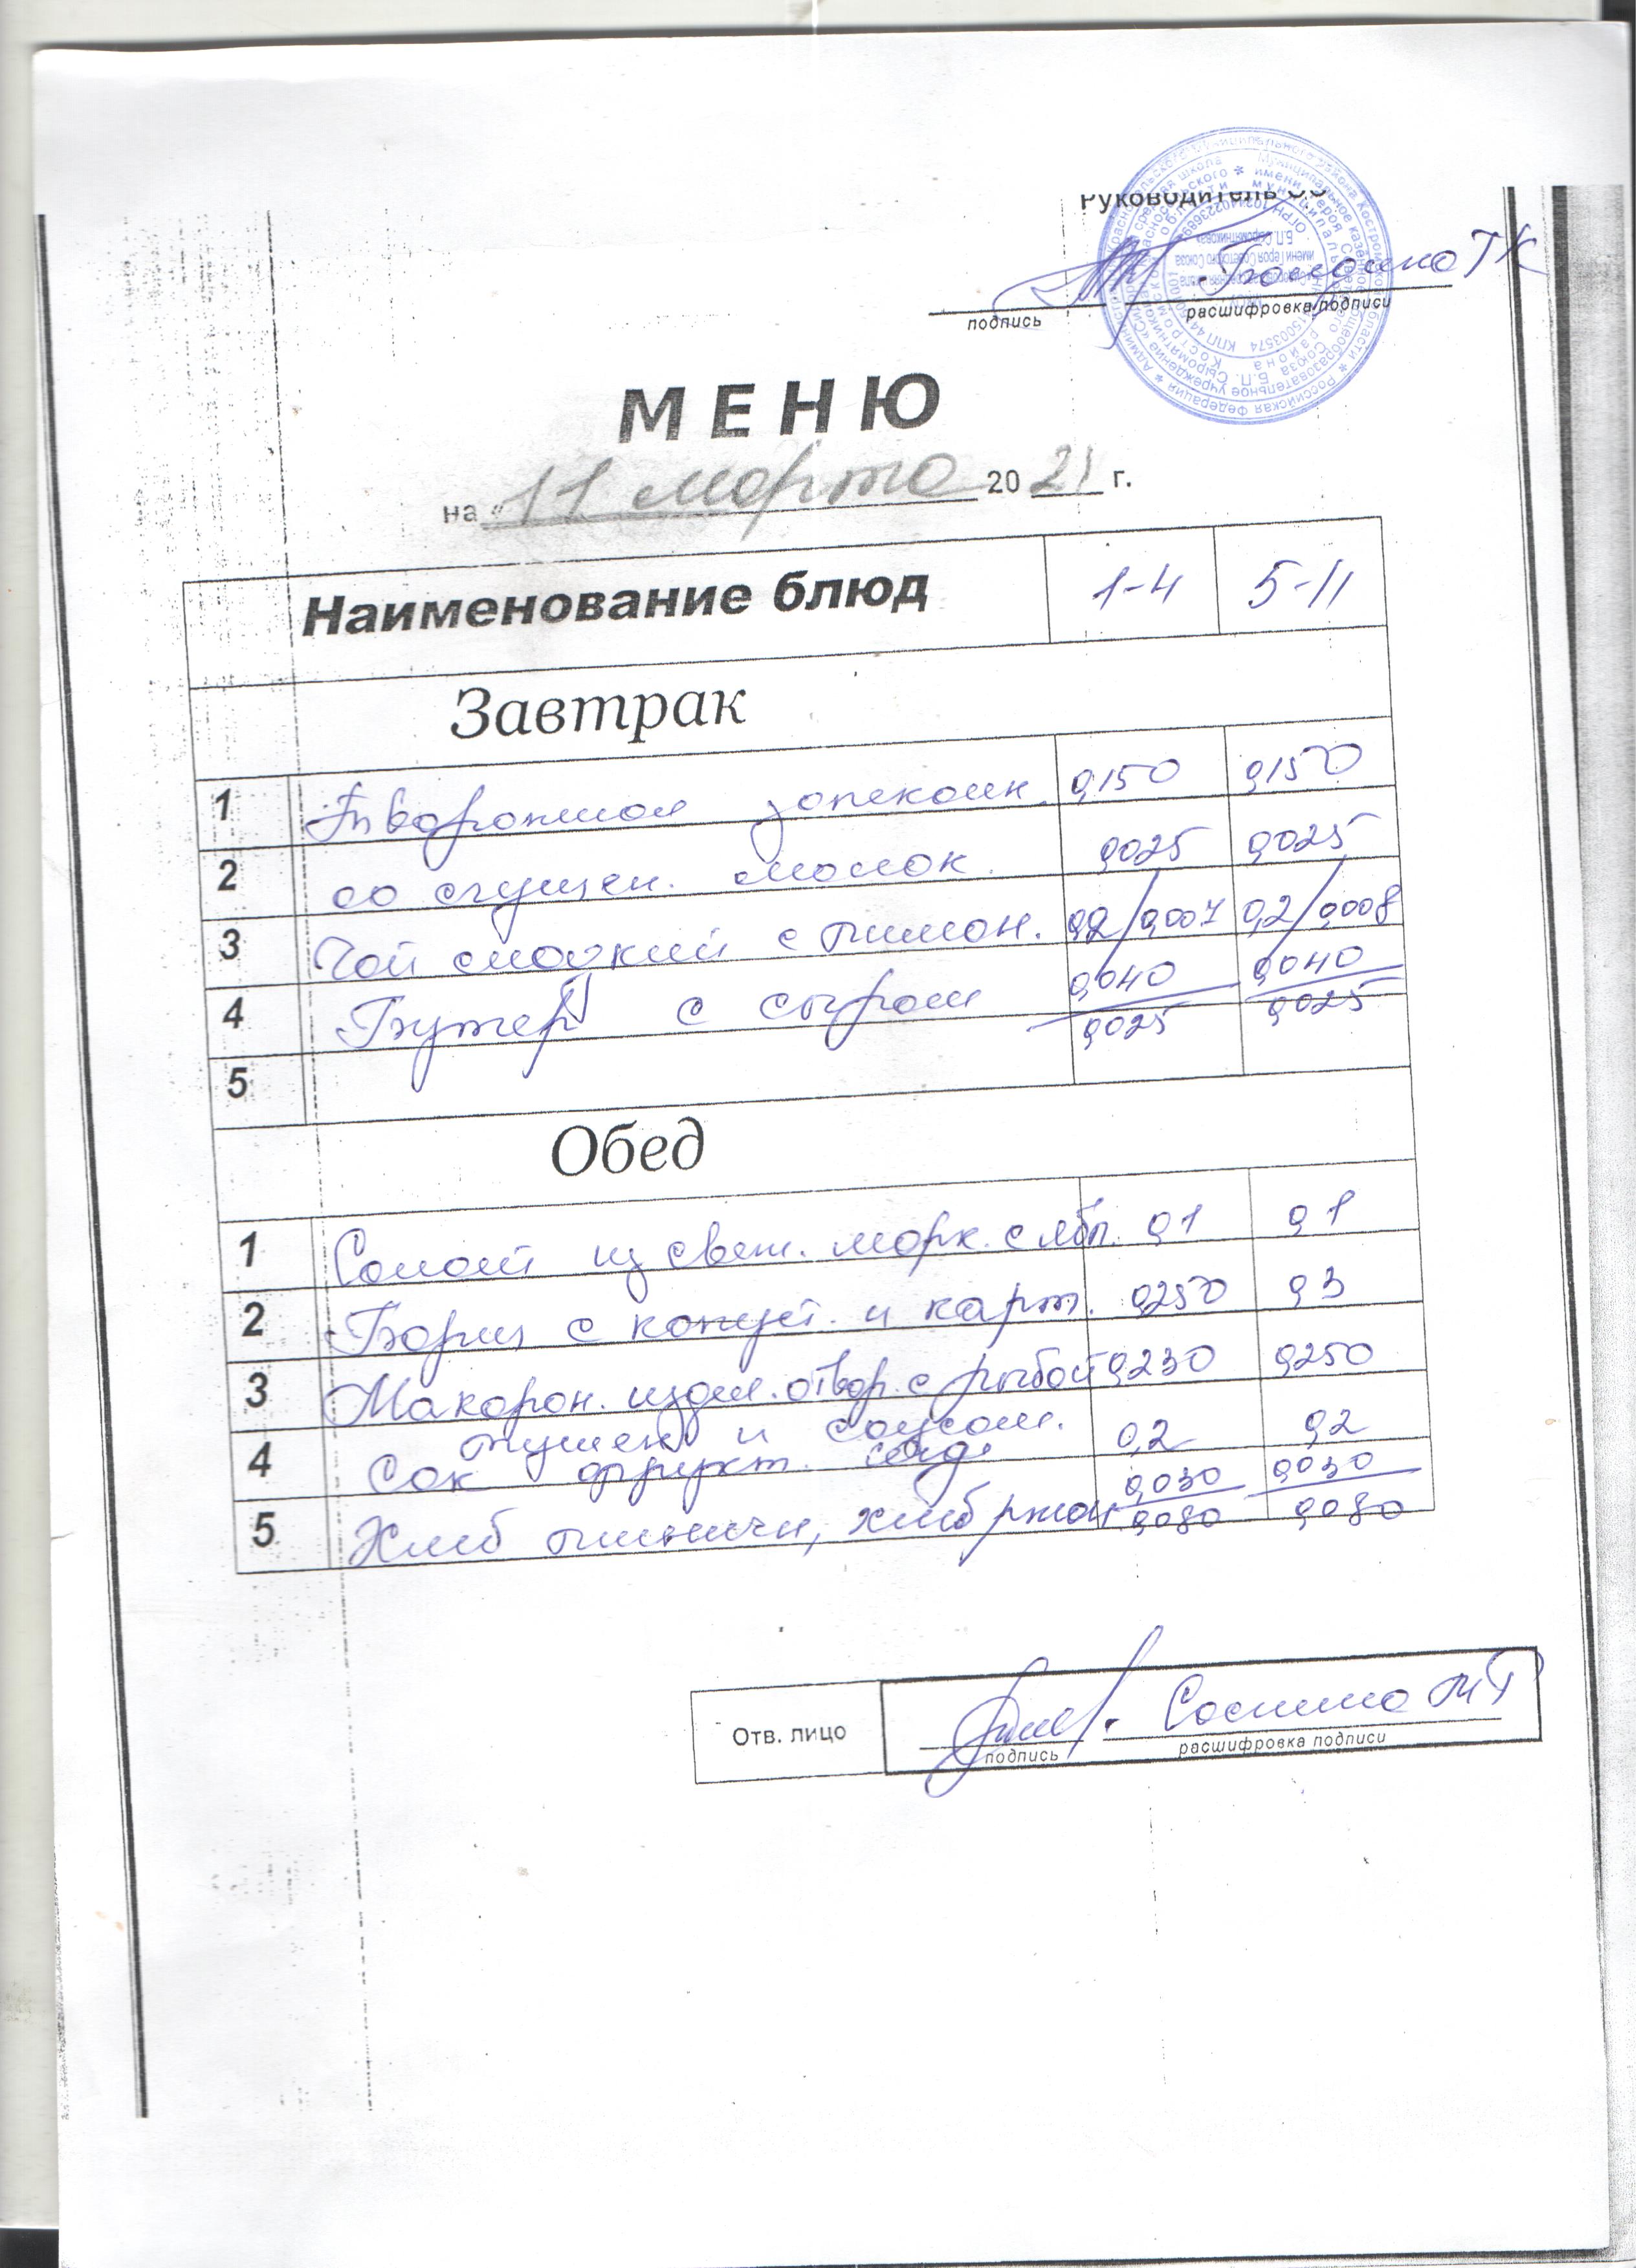 Руководитель
подпись
расшифровка подписи
МЕНЮ
на « 11 марта 2021 г.
Наименование блюд 1-4 5-11
Завтрак
1 Творожная запекан. 0,150 0,150
2 со сгущен. молок. 0,025 0,025
3 Чай сладкий с лимон. 0,2/0,007 0,2/0,008
4 Бутерб с сыром 0,040/0,025 0,040/0,025
5
Обед
1 Салат из свеж. морк. с ябл. 0,1 0,1
2 Борщ с капуст. и карт. 0,250 0,3
3 Макарон. издел. отвар. с рыбой 0,230 0,250
тушен и соусом.
4 Сок фрукт. 0,2 0,2
5 Хлеб пшеничн, хлеб ржан 0,030/0,080 0,030/0,080
Отв. лицо
подпись
расшифровка подписи